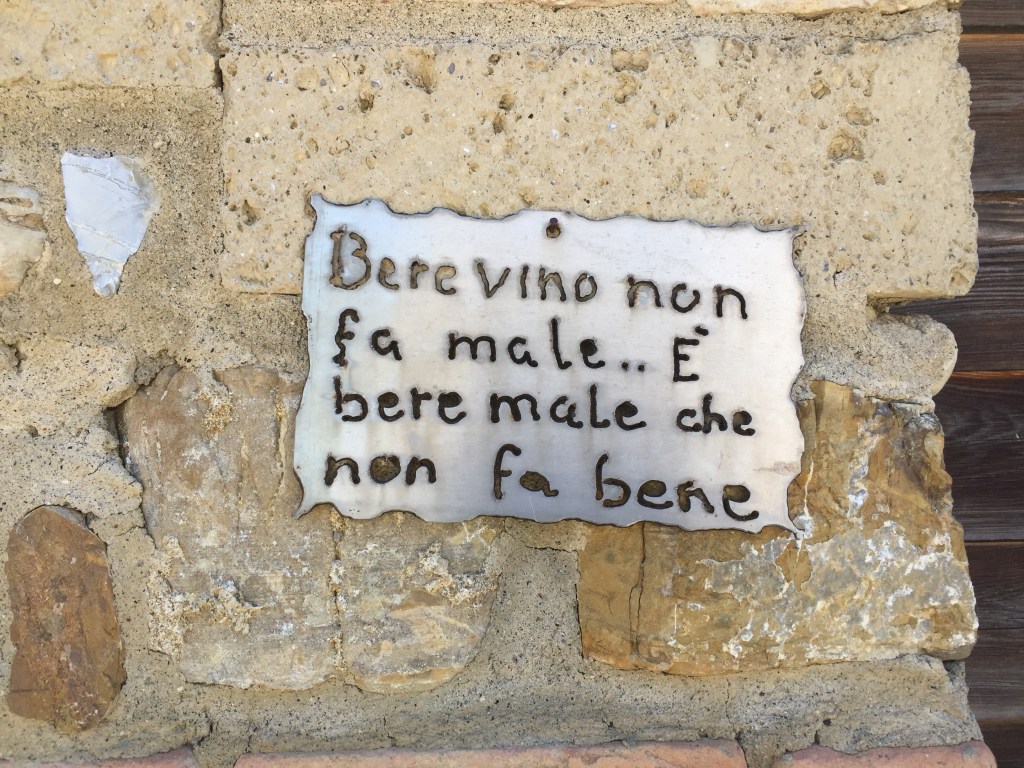 Bere vino non
fa male.. È
bere male che
non fa bene